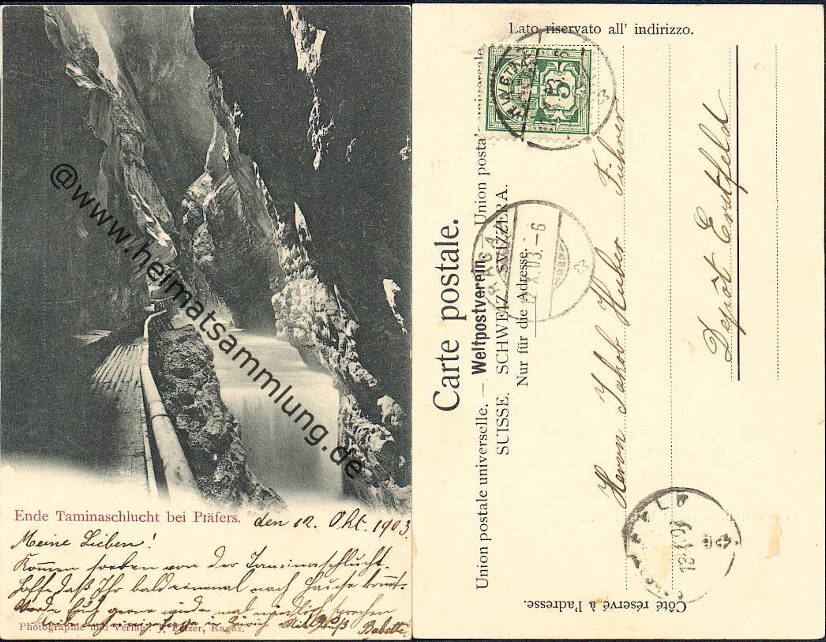 @www.heimatsammlung.de
Ende Taminaschlucht bei Pfäfers.
den 12. Okt. 1903
Meine Lieben!
Kommen soeben von der Taminaschlucht.
Hoffe daß Ihr bald einmal nach Hause kommt.
Werde Euch gerne wieder mal
in Zürich Babette
Photographie und Verlag: J. Ragaz.
Lato riservato all' indirizzo.
HELVETIA
5
Carte postale.
Union postale universelle. — Weltpostverein. — Union postale universale
SUISSE. SCHWEIZ. SVIZZERA.
Nur für die Adresse.
RAGAZ
12.X.03.-6
Herrn Jakob Huber Führer
Depôt Erstfeld
Côté réservé à l'adresse.